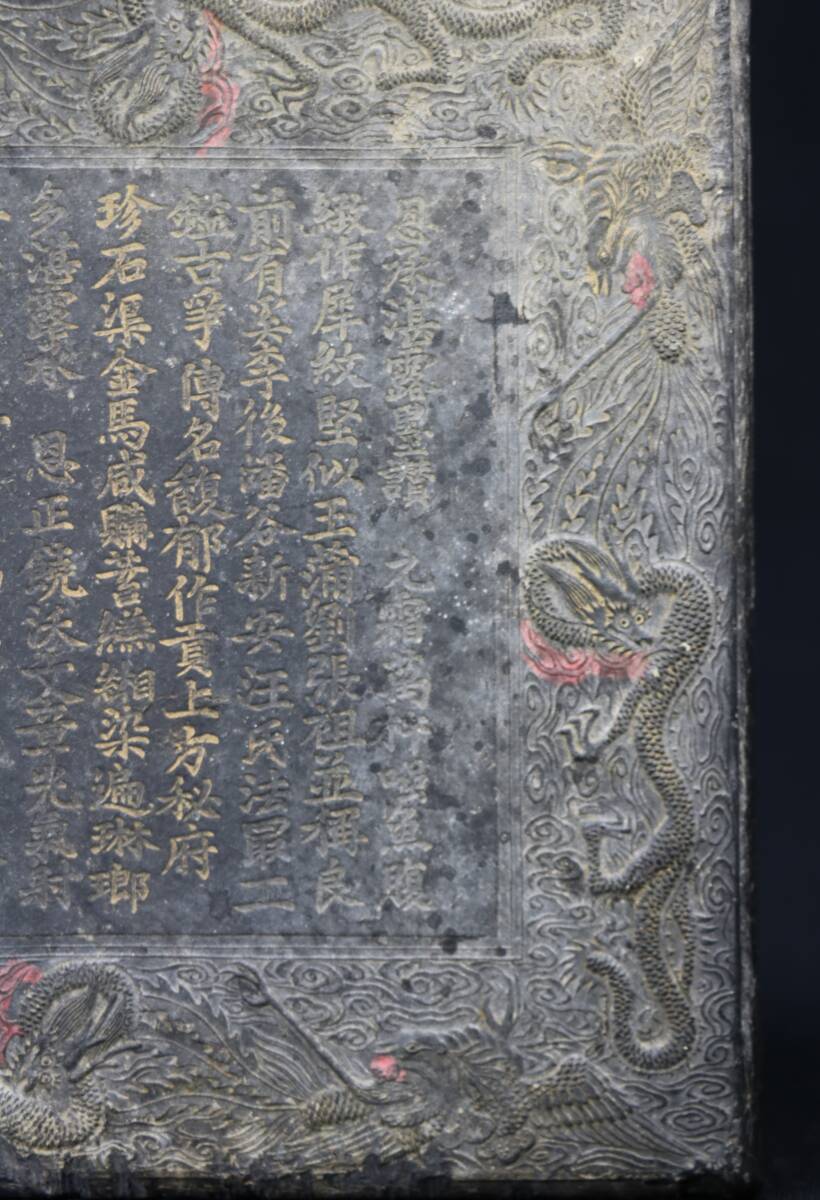 恩承湛露墨讚 元霜萬杵魚腹
綴作犀紋堅似玉蒲劉張祖並稱良
前有奚李後潘谷新安汪氏法最二
鑑古爭傳名馥郁作貢上方秘府
珍石渠金馬咸縹緗染遍琳瑯
多湛露 恩正饒沃文章光氣射